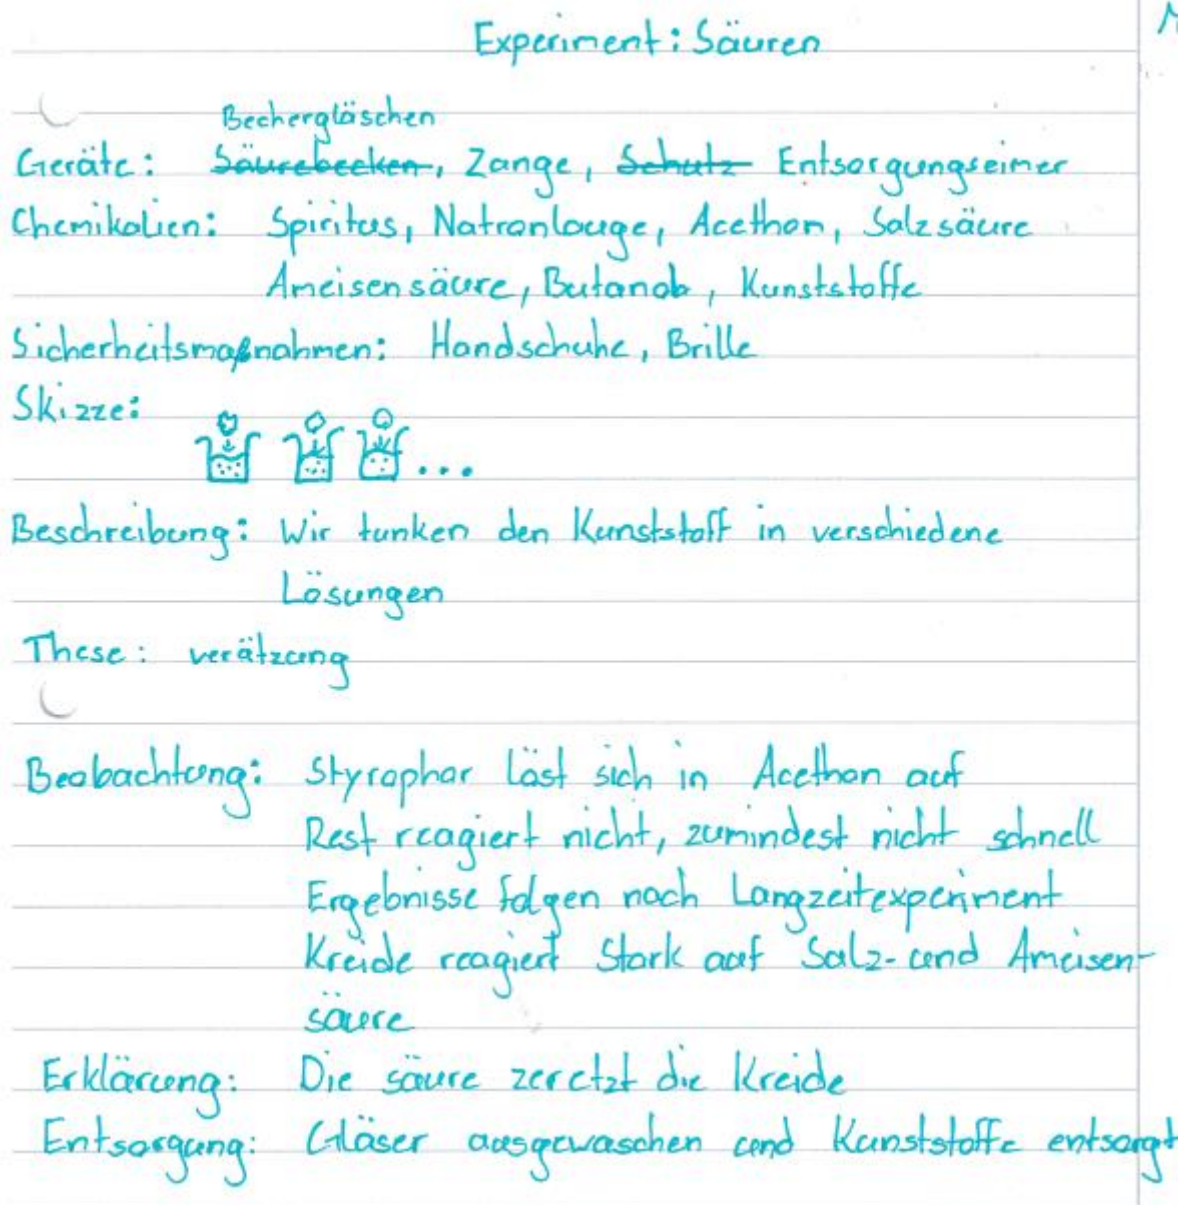 Experiment: Säuren
Bechergläschen
Geräte: Säurebecken, Zange, Schutz Entsorgungseimer
Chemikalien: Spiritus, Natronlauge, Acethon, Salzsäure
Ameisensäure, Butanob, Kunststoffe
Sicherheitsmaßnahmen: Handschuhe, Brille
Skizze:
...
Beschreibung: Wir tunken den Kunststoff in verschiedene
Lösungen
These: verätzung
Beobachtung: Styrophor löst sich in Acethon auf
Rest reagiert nicht, zumindest nicht schnell
Ergebnisse folgen nach Langzeitexperiment
Kreide reagiert Stark auf Salz- und Ameisen-
säure
Erklärung: Die säure zeretzt die Kreide
Entsorgung: Gläser ausgewaschen und Kunststoffe entsorgt